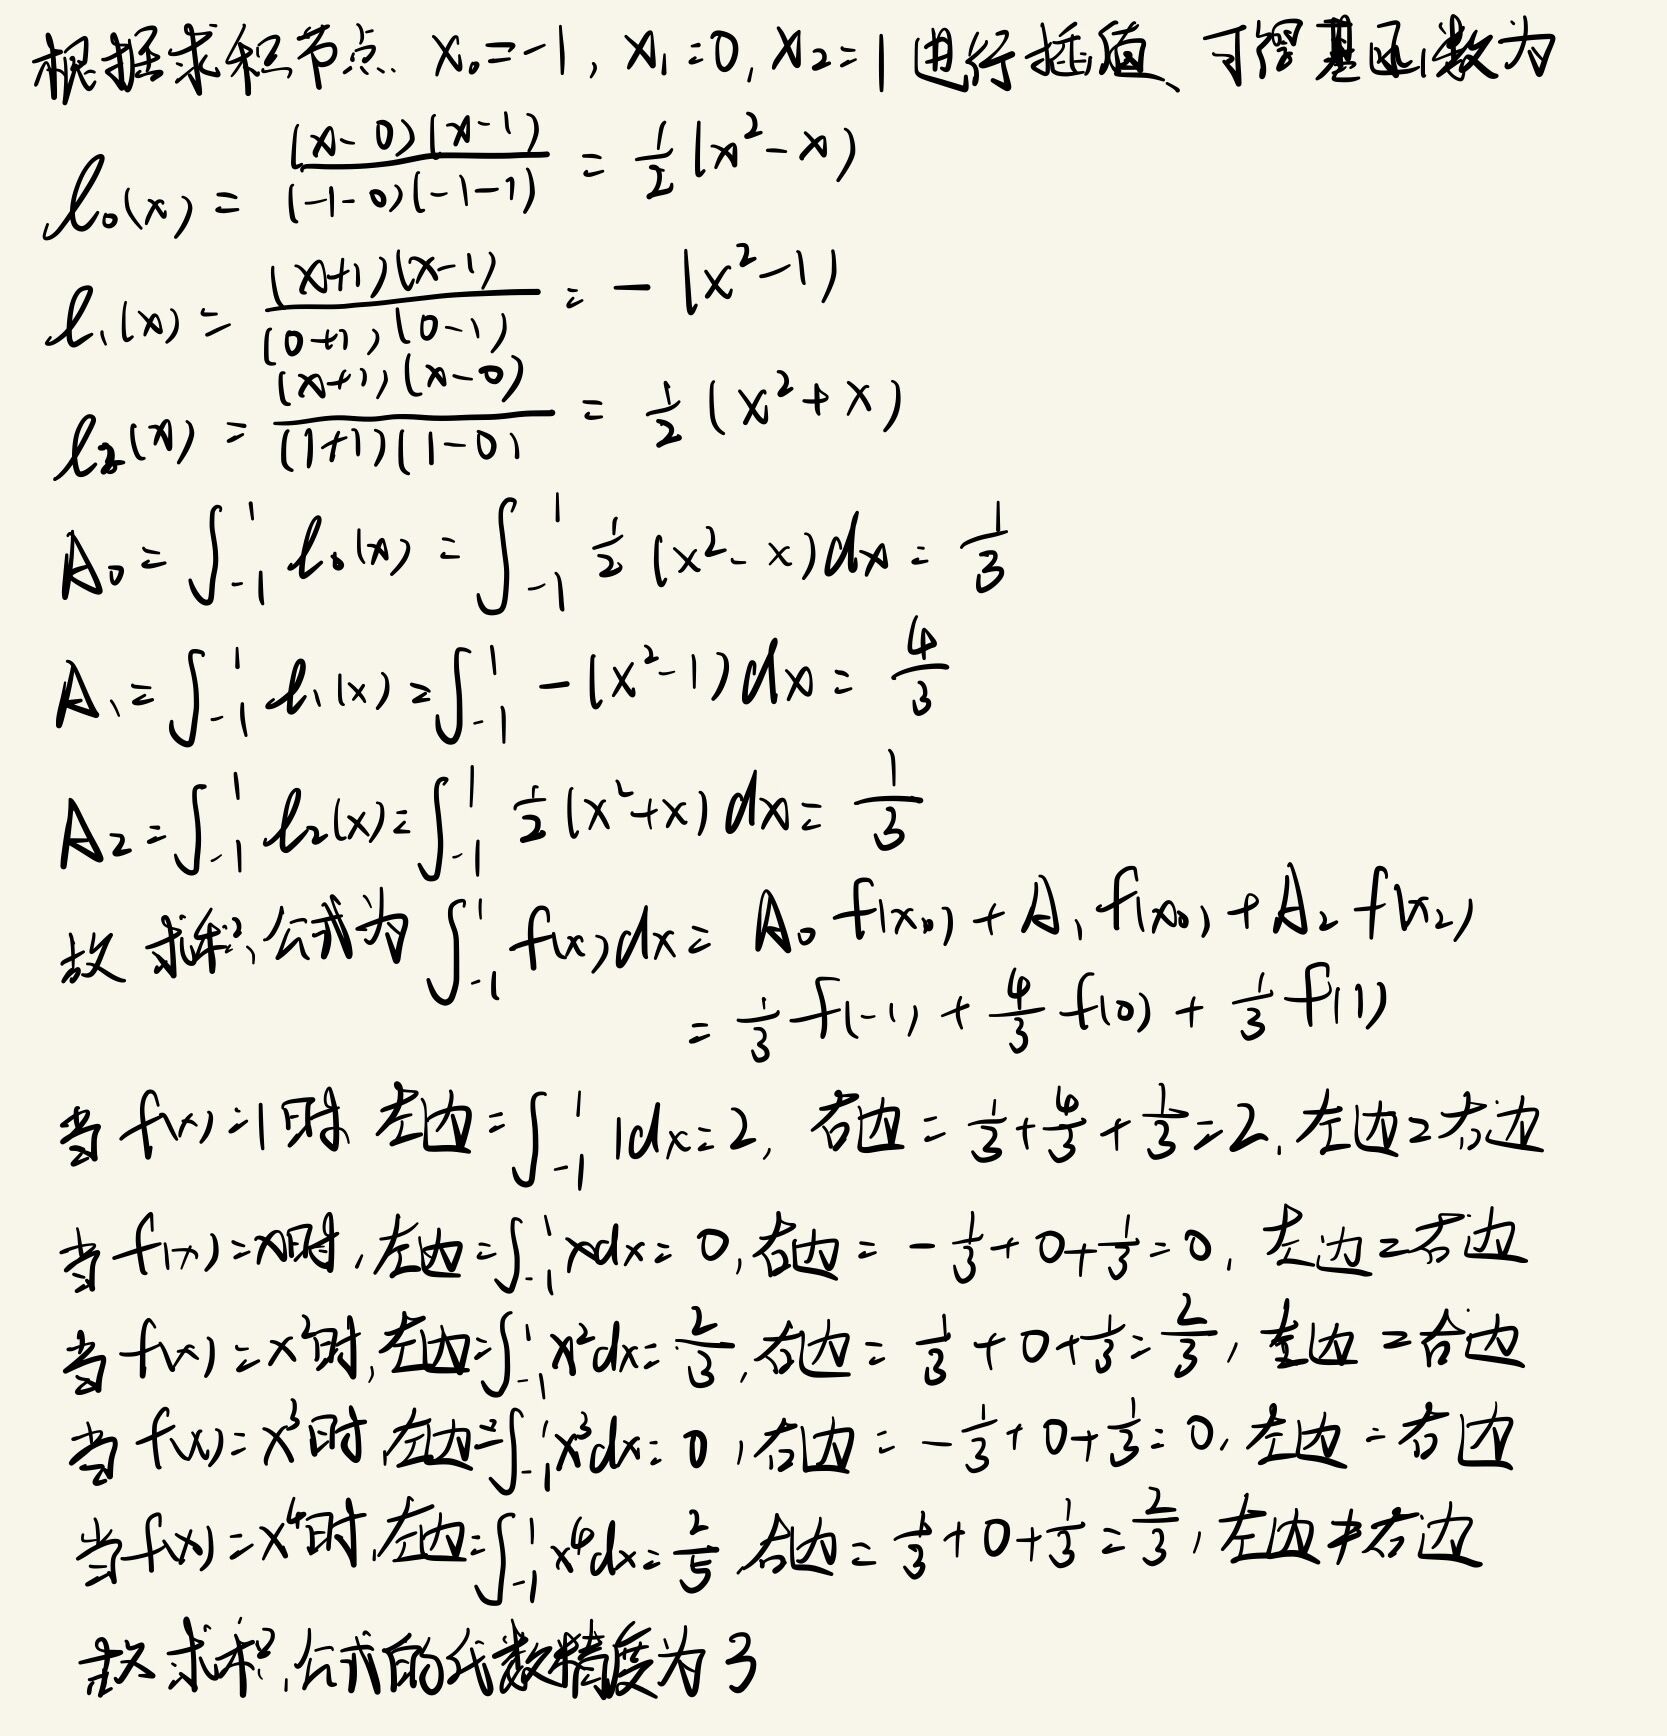 根据求积节点 x₀=-1, x₁=0, x₂=1进行插值、可得基函数为
l₀(x) = (x-0)(x-1) / (-1-0)(-1-1) = 1/2 (x²-x)
l₁(x) = (x+1)(x-1) / (0+1)(0-1) = -(x²-1)
l₂(x) = (x+1)(x-0) / (1+1)(1-0) = 1/2 (x²+x)
A₀ = ∫₋₁¹ l₀(x) = ∫₋₁¹ 1/2 (x²-x)dx = 1/3
A₁ = ∫₋₁¹ l₁(x) = ∫₋₁¹ -(x²-1)dx = 4/3
A₂ = ∫₋₁¹ l₂(x) = ∫₋₁¹ 1/2 (x²+x)dx = 1/3
故 求积公式为 ∫₋₁¹ f(x)dx = A₀f(x₀) + A₁f(x₀) + A₂f(x₂)
= 1/3 f(-1) + 4/3 f(0) + 1/3 f(1)
当 f(x)=1时 左边=∫₋₁¹ 1dx=2, 右边 = 1/3+4/3+1/3=2, 左边=右边
当 f(x)=x时, 左边=∫₋₁¹ xdx=0, 右边 = -1/3+0+1/3=0, 左边=右边
当 f(x)=x²时, 左边=∫₋₁¹ x²dx=2/3, 右边 = 1/3+0+1/3=2/3, 左边=右边
当 f(x)=x³时, 左边=∫₋₁¹ x³dx=0, 右边 = -1/3+0+1/3=0, 左边=右边
当 f(x)=x⁴时, 左边=∫₋₁¹ x⁴dx=2/5 右边 = 1/3+0+1/3=2/3, 左边≠右边
故 求积公式的代数精度为3